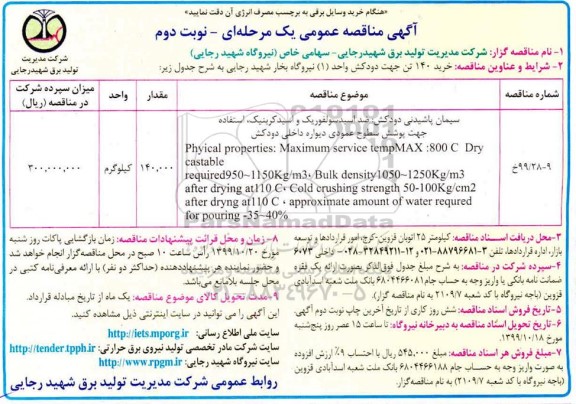 «هنگام خرید وسایل برقی به برچسب مصرف انرژی آن دقت نمایید»
آگهی مناقصه عمومی یک مرحله‌ای - نوبت دوم
شرکت مدیریت
تولید برق شهیدرجایی
۱- نام مناقصه گزار: شرکت مدیریت تولید برق شهیدرجایی- سهامی خاص (نیروگاه شهید رجایی)
۲- شرایط و عناوین مناقصه: خرید ۱۴۰ تن جهت دودکش واحد (۱) نیروگاه بخار شهید رجایی به شرح جدول زیر:
شماره مناقصه
موضوع مناقصه
مقدار
واحد
میزان سپرده شرکت در مناقصه (ریال)
۹۹/۲۸-۹خ
سیمان پاشیدنی دودکش، ضد اسیدسولفوریک و اسیدکربنیک، استفاده
جهت پوشش سطوح عمودی دیواره داخلی دودکش
Phyical properties: Maximum service tempMAX :800 C Dry
castable
required950~1150Kg/m3، Bulk density1050~1250Kg/m3
after drying at110 C، Cold crushing strength 50-100Kg/cm2
after dryng at110 C ، approximate amount of water requred
for pouring -35~40%
۱۴۰,۰۰۰
کیلوگرم
۳۰۰,۰۰۰,۰۰۰
۳-محل دریافت اسناد مناقصه: کیلومتر ۲۵ اتوبان قزوین-کرج، امور قراردادها و توسعه
بازار، اداره قراردادها، تلفن ۳-۸۸۷۹۶۶۸۱-۰۲۱ و ۱۲-۳۲۸۴۹۲۱۱-۰۲۸ داخلی ۶۰۷۳
۴-سپرده شرکت در مناقصه: به شرح مبلغ جدول فوق‌الذکر بصورت ارائه یک فقره
ضمانت نامه بانکی یا واریز وجه به حساب جام ۶۸۰۴۴۶۶۰۸۱ بانک ملت شعبه اسدآبادی
قزوین (باجه نیروگاه با کد شعبه ۲۱۰۹/۷ به نام مناقصه گزار).
۵-تاریخ فروش اسناد مناقصه: شش روز کاری از تاریخ آخرین چاپ نوبت دوم آگهی.
۶-تاریخ تحویل اسناد مناقصه به دبیرخانه نیروگاه: تا ساعت ۱۵ عصر روز پنج‌شنبه
مورخ ۱۳۹۹/۱۰/۱۸
۷-مبلغ فروش هر اسناد مناقصه: مبلغ ۵۴۵,۰۰۰ ریال با احتساب ۹٪ ارزش افزوده
به صورت واریز وجه به حساب جام ۶۸۰۴۴۶۶۱۸۸ بانک ملت شعبه اسدآبادی قزوین
(باجه نیروگاه با کد شعبه ۲۱۰۹/۷) به نام مناقصه‌گزار.
۸- زمان و محل قرائت پیشنهادات مناقصه: زمان بازگشایی پاکات روز شنبه
مورخ ۱۳۹۹/۱۰/۲۰ رأس ساعت ۱۰ صبح در محل مناقصه‌گزار انجام خواهد شد
و حضور نماینده هر پیشنهاددهنده (حداکثر دو نفر) با ارائه معرفی‌نامه کتبی در
محل جلسه بلامانع می‌باشد.
۹-مدت تحویل کالای موضوع مناقصه: یک ماه از تاریخ مبادله قرارداد.
این آگهی را می توانید در سایت اینترنتی ذیل مشاهده کنید.
سایت ملی اطلاع رسانی: http://iets.mporg.ir
سایت شرکت مادر تخصصی تولید نیروی برق حرارتی: http://tender.tpph.ir
سایت نیروگاه شهید رجایی: http://www.rpgm.ir
روابط عمومی شرکت مدیریت تولید برق شهید رجایی